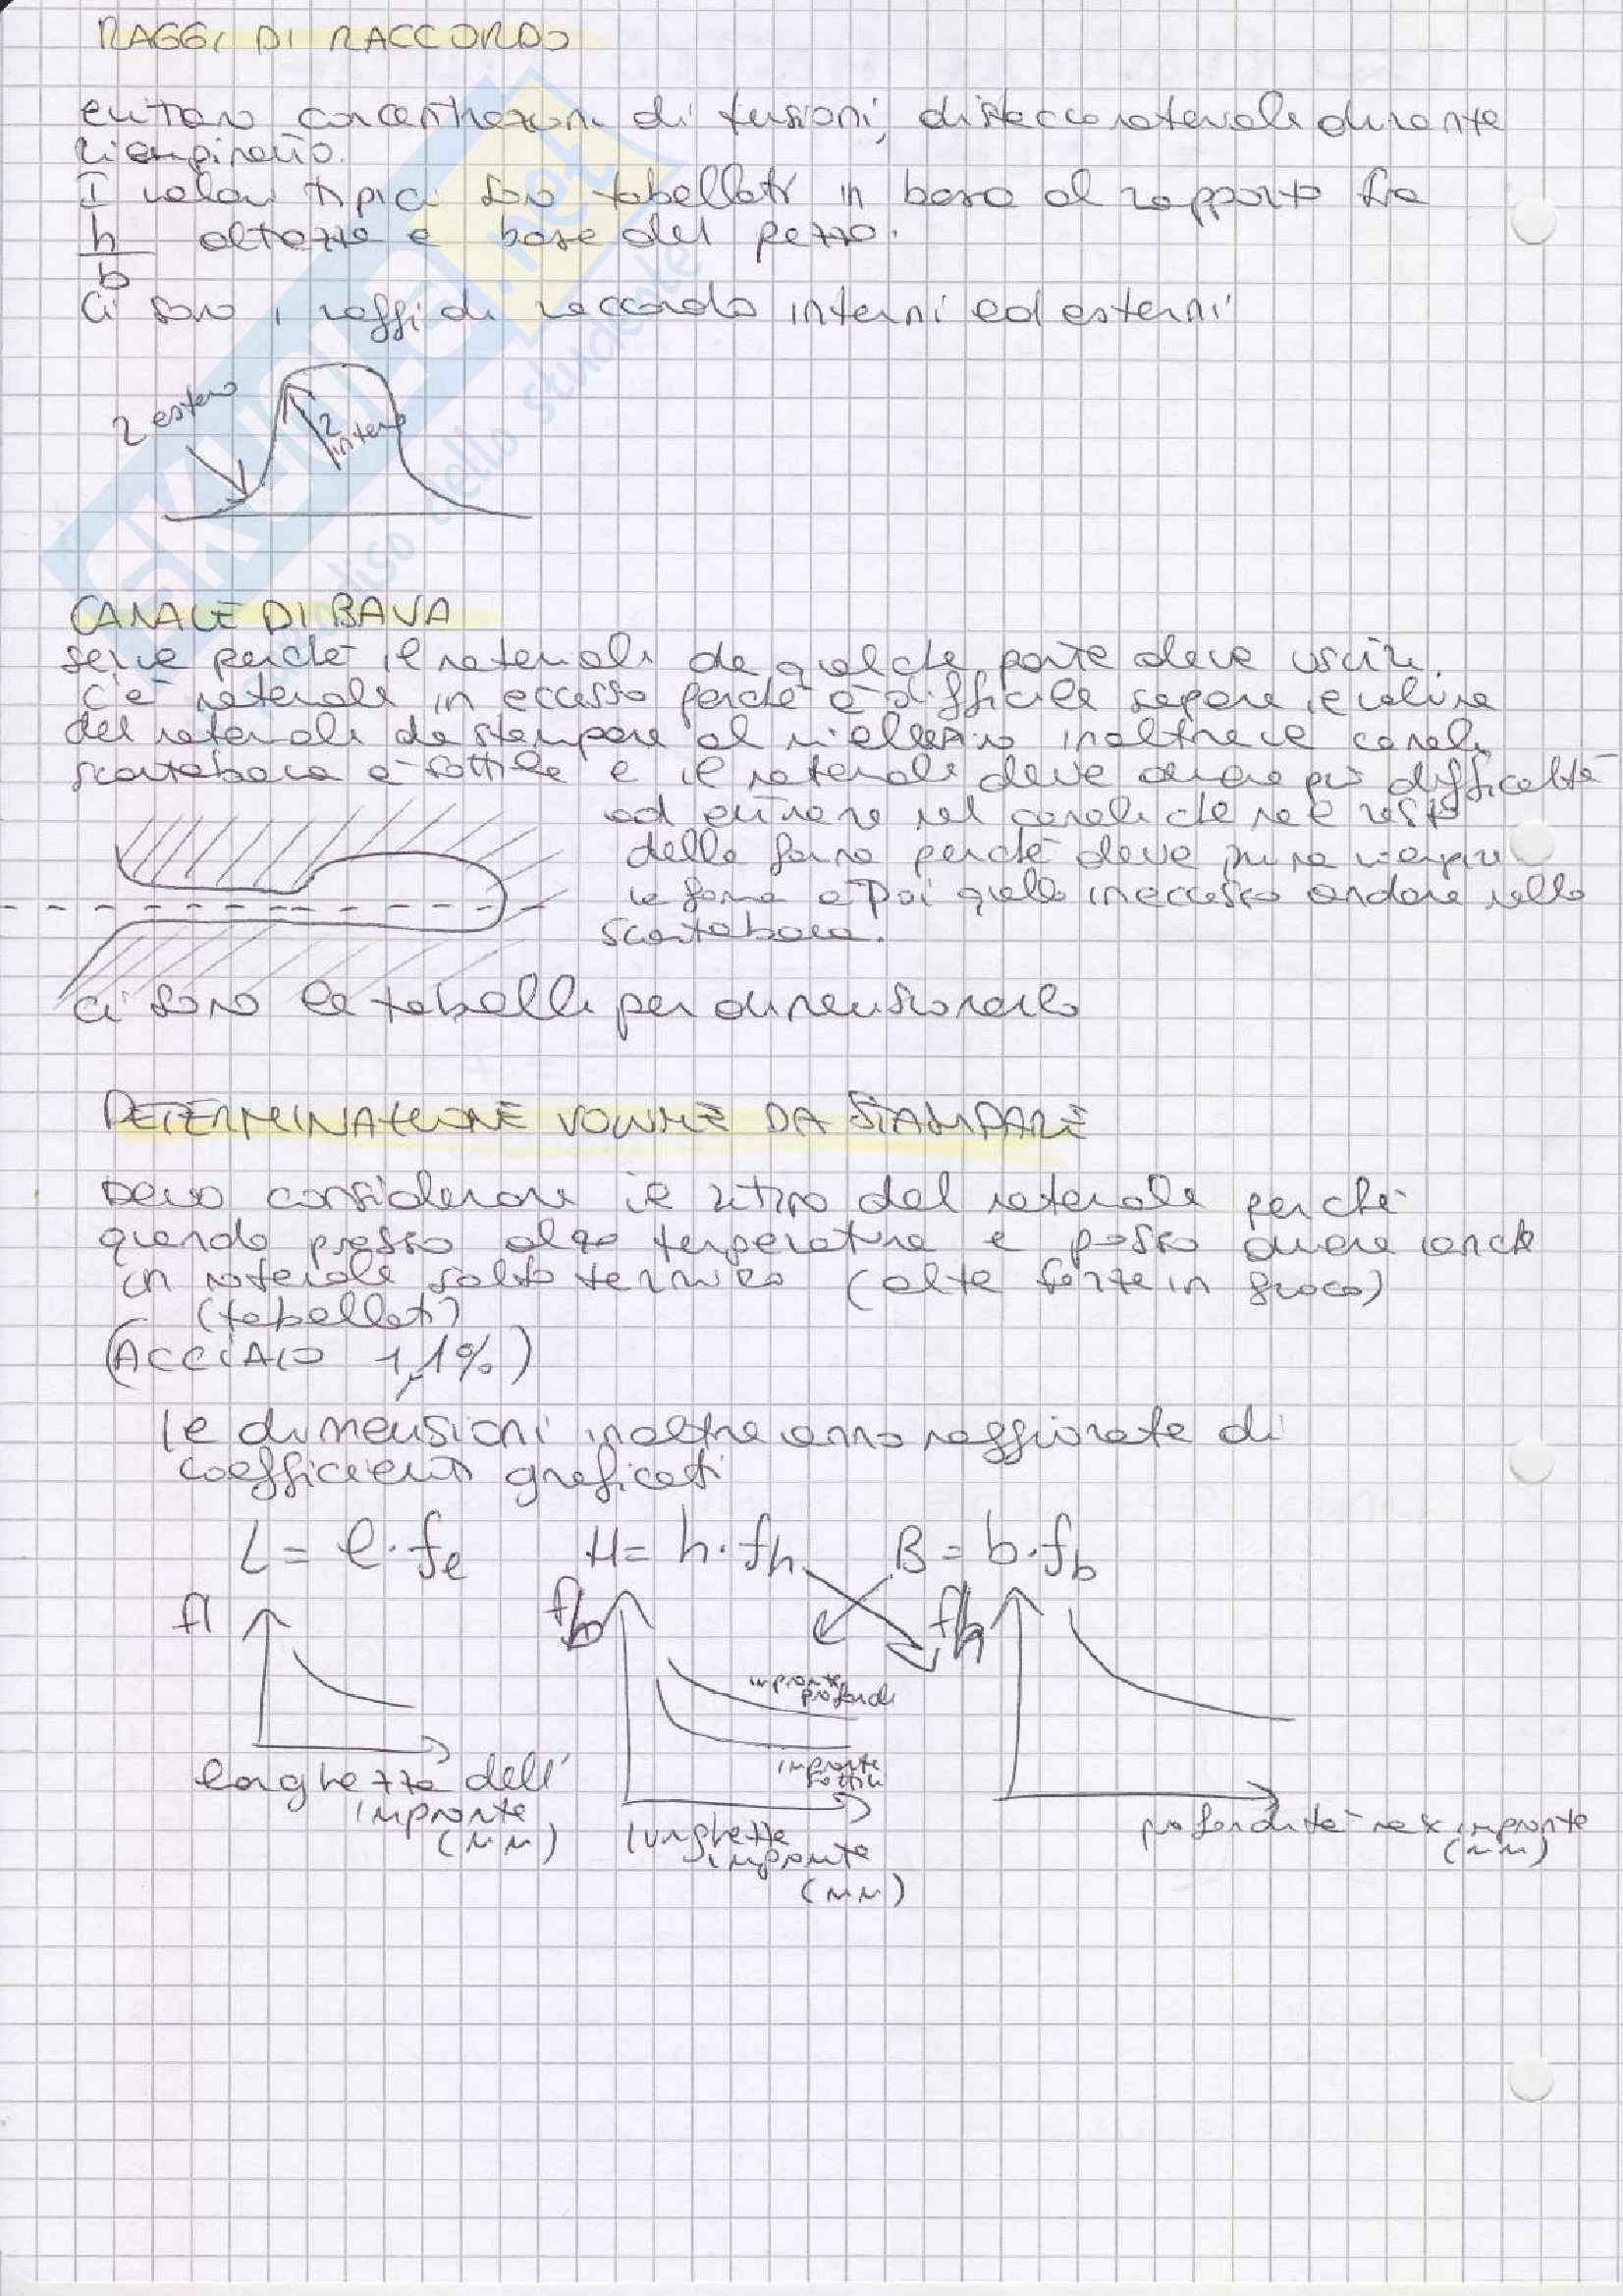 RAGGI DI RACCORDO
evitano concentrazioni di tensioni, distacco materiale durante
riempimento.
I valori tipici sono tabellati in base al rapporto fra
h/b altezza e base del pezzo.
Ci sono i raggi di raccordo interni ed esterni
r esterno
r interno
SKUOLA.net
paradiso dello studente
CANALE DI BAVA
serve perché il materiale da qualche parte deve uscire.
C'è materiale in eccesso perché è difficile sapere il volume
del materiale da stampare al inoltre il canale
scartabava è sottile e il materiale deve avere più difficoltà
ad entrare nel canale che nel resto
della forma perché deve prima riempire
la forma e poi quello in eccesso andare nello
scartabava.
ci sono le tabelle per dimensionarlo
DETERMINAZIONE VOLUME DA STAMPARE
Devo considerare il ritiro del materiale perché
quando presso alzo temperatura e posso avere anche
un notevole salto termico (alte forze in gioco)
(tabellati)
(ACCIAIO 1,1%)
le dimensioni inoltre vanno maggiorate di
coefficienti graficati
L = l·fl
H = h·fh
B = b·fb
fl
fb
fh
impronte profonde
impronte sottili
larghezza dell'
impronta
(mm)
lunghezza
impronta
(mm)
profondità max impronta
(mm)